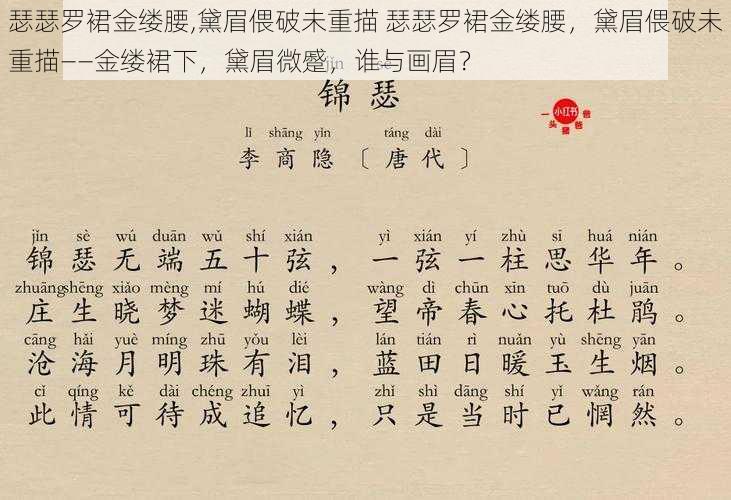 瑟瑟罗裙金缕腰,黛眉偎破未重描 瑟瑟罗裙金缕腰，黛眉偎破未
重描——金缕裙下，黛眉微蹙，谁与画眉？
jǐn sè
锦瑟
小红书
一头猪爸爸
lǐ shāng yǐn táng dài
李商隐〔唐代〕
jǐn sè wú duān wǔ shí xián yì xián yí zhù sī huá nián
锦瑟无端五十弦，一弦一柱思华年。
zhuāng shēng xiǎo mèng mí hú dié wàng dì chūn xīn tuō dù juān
庄生晓梦迷蝴蝶，望帝春心托杜鹃。
cāng hǎi yuè míng zhū yǒu lèi lán tián rì nuǎn yù shēng yān
沧海月明珠有泪，蓝田日暖玉生烟。
cǐ qíng kě dài chéng zhuī yì zhǐ shì dāng shí yǐ wǎng rán
此情可待成追忆，只是当时已惘然。